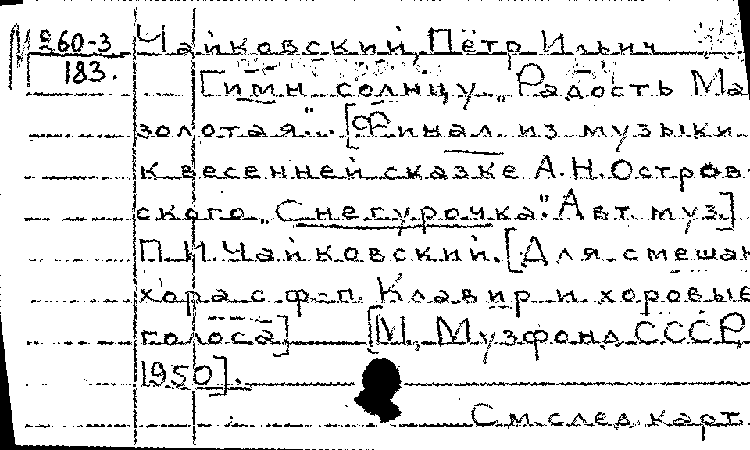 М 260-3 Чайковский, Пётр Ильич
183. Гимн солнцу „Радость Ма
золотая"... [Финал из музыки
к весенней сказке А.Н.Остров-
ского „Снегурочка". Авт. муз.]
П.И.Чайковский. [Для смешан
хора с ф-п. Клавир и хоровые
голоса] [М., Музфонд СССР,
1950].
См. след. карт.